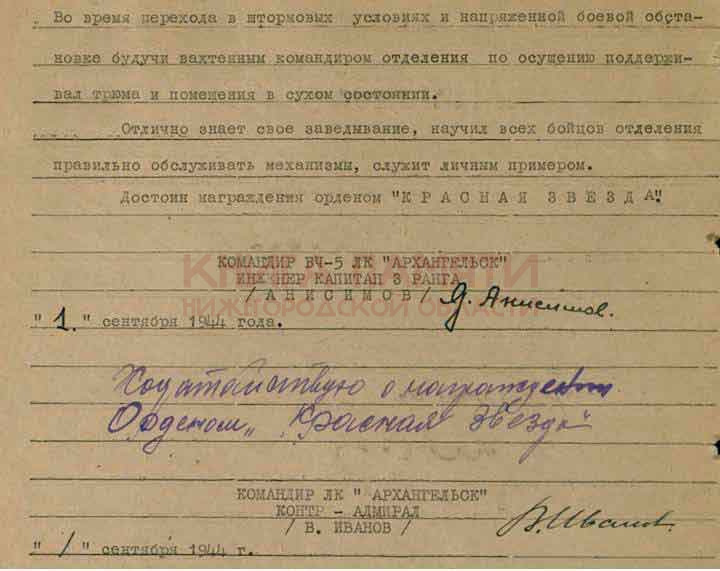 Во время перехода в штормовых условиях и напряженной боевой обста-
новке будучи вахтенным командиром отделения по осушению поддержи-
вал трюма и помещения в сухом состоянии.
Отлично знает свое заведывание, научил всех бойцов отделения
правильно обслуживать механизмы, служит личным примером.
Достоин награждения орденом "К Р А С Н А Я З В Е З Д А".
КОМАНДИР БЧ-5 ЛК "АРХАНГЕЛЬСК"
ИНЖЕНЕР КАПИТАН 3 РАНГА
КНИГА ПАМЯТИ
/ А Н И С И М О В / Д. Анисимов.
НИЖЕГОРОДСКОЙ ОБЛАСТИ
"1." сентября 1944 года.
Ходатайствую о награждении
Орденом „Красная Звезда"
КОМАНДИР ЛК " АРХАНГЕЛЬСК"
КОНТР - АДМИРАЛ
/ В. ИВАНОВ / В. Иванов.
"1" сентября 1944 г.